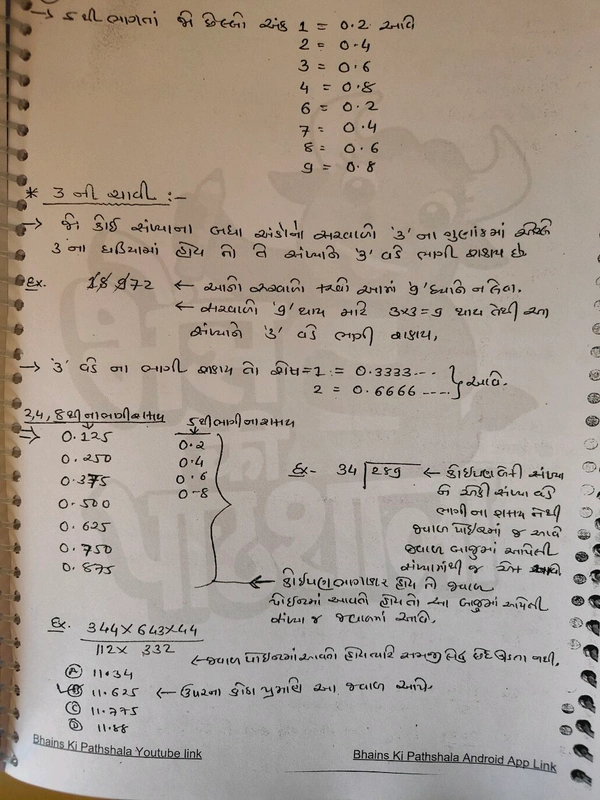 → 5 થી ભાગતાં જો છેલ્લો અંક 1 = 0.2 આવે
2 = 0.4
3 = 0.6
4 = 0.8
6 = 0.2
7 = 0.4
8 = 0.6
9 = 0.8
* 3 ની ચાવી :-
→ જો કોઈ સંખ્યાના બધા અંકોનો સરવાળો '3' ના ગુણાંકમાં
3 ના ઘડિયામાં હોય તો તે સંખ્યાને '3' વડે ભાગી શકાય છે.
Ex. 18972 ← આનો સરવાળો આમાં '9' ધ્યાને ન લેવા.
← સરવાળો '9' થાય માટે 3×3=9 થાય તેથી આ
સંખ્યાને '3' વડે ભાગી શકાય.
→ '3' વડે ના ભાગી શકાય તો શેષ = 1 = 0.3333...
2 = 0.6666 .... } આવે.
2,4,8 થી ના ભાગી શકાય
5 થી ભાગી ના શકાય
⇒ 0.125
0.250
0.375
0.500
0.625
0.750
0.875
0.2
0.4
0.6
0.8
Ex- 34 289 ← કોઈપણ બેકી સંખ્યા
એકી સંખ્યા વડે
ભાગી ના શકાય તેથી
જવાબ પોઈન્ટમાં જ આવે
જવાબ બાજુમાં આપેલી
સંખ્યામાંથી જ એક
← કોઈપણ ભાગાકાર હોય તો જવાબ
પોઈન્ટમાં આવતો હોય તો આ બાજુમાં આપેલી
સંખ્યા જ જવાબમાં આવે.
Ex. 344 × 643 × 44
112 × 332
← જવાબ પોઈન્ટમાં આવતો હોય ત્યારે સમજી લેવું છેદ ઉડતા નથી.
(A) 11.34
(B) 11.625 ← ઉપરના કોઠા પ્રમાણે આ જવાબ આવે.
(C) 11.775
(D) 11.88
भैंस
की
पाठशाला
Bhains Ki Pathshala Youtube link
Bhains Ki Pathshala Android App Link